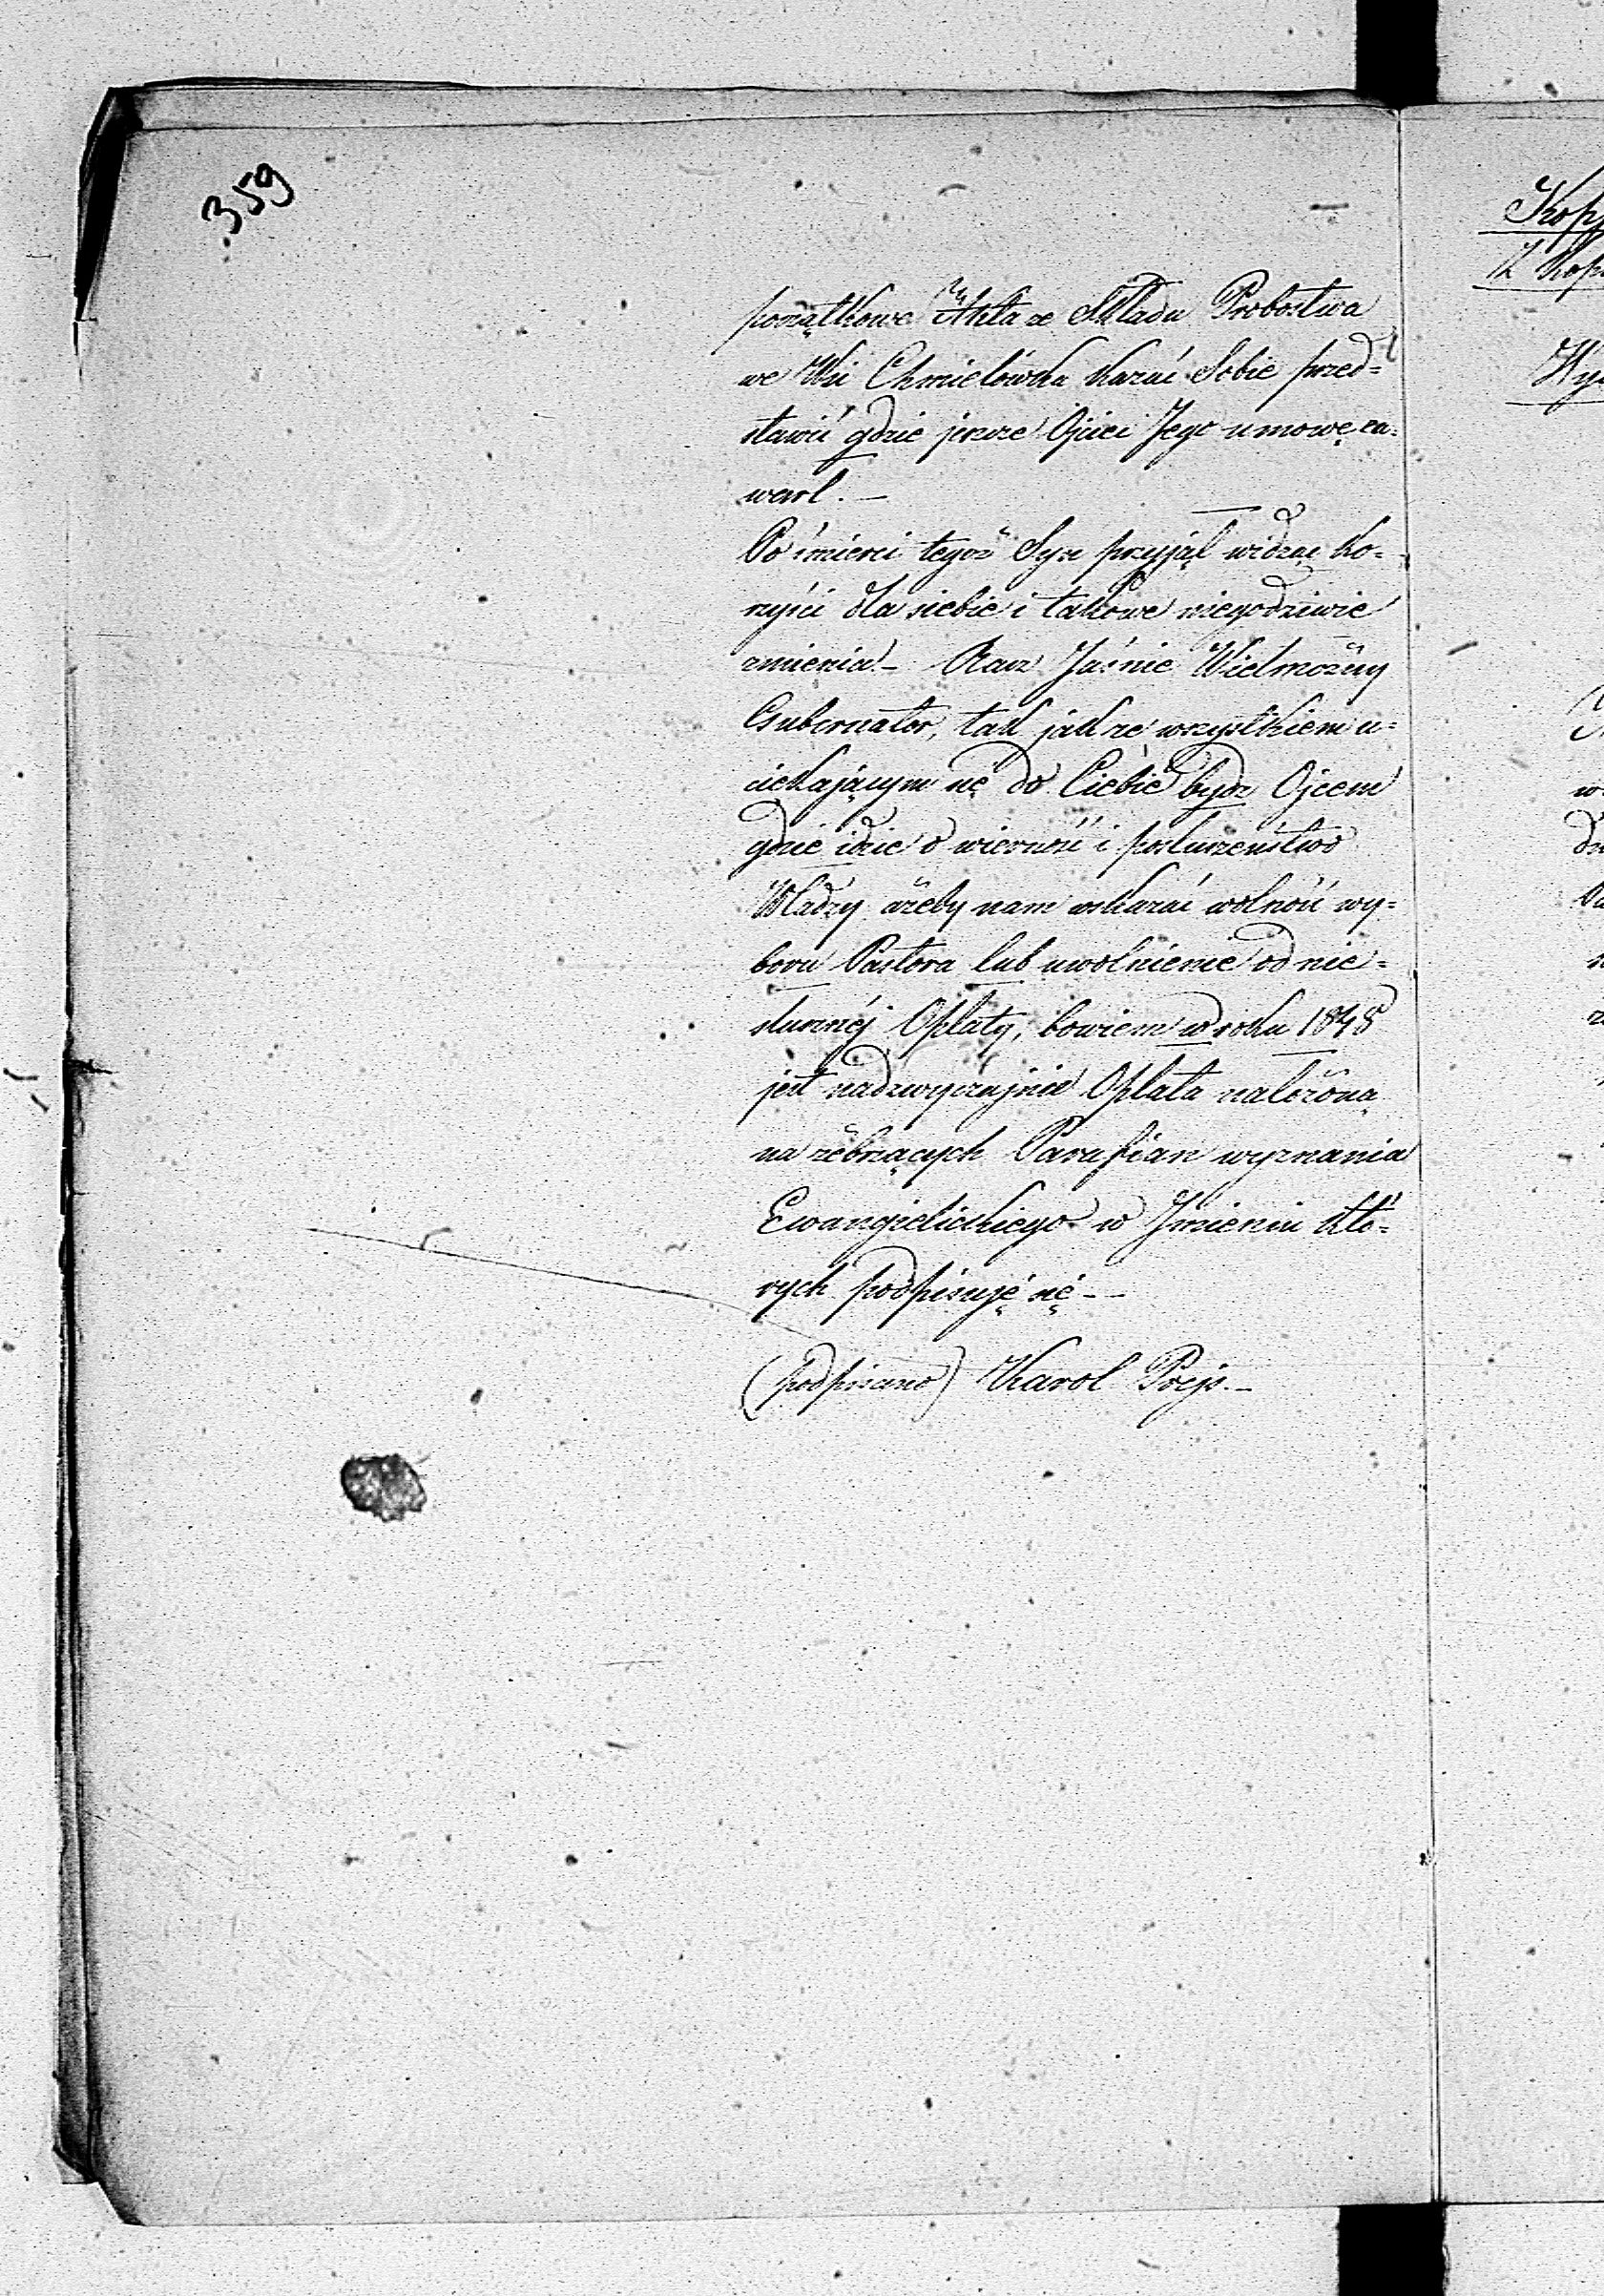 359
początkowe Akta ze Składu Probostwa
we Wsi Chmielówka kazać Sobie przed=
stawić gdzie jeszcze Ojciec Jego umowę za=
warł. —
Po śmierci tegoż Syn przyjął widząc ko=
rzyści dla siebie i takowe niegodziwie
zmienia — Racz Jaśnie Wielmożny
Gubernator, tak jak ze wszystkiem u=
ciekającym się do Ciebie bydź Ojcem
gdzie idzie o wierność i posłuszeństwo
Władzy ażeby nam wskazać wolność wy=
boru Pastora lub uwolnienie od nie=
słusznéj Opłaty, bowiem w roku 1848
jest nadzwyczajnie Opłata nałożona
na żebrzących Parafian wyznania
Ewangielickiego w Jmieniu któ=
rych podpisuję się — —
(podpisano) Karol Prejs. —
Kopj
Z Kop